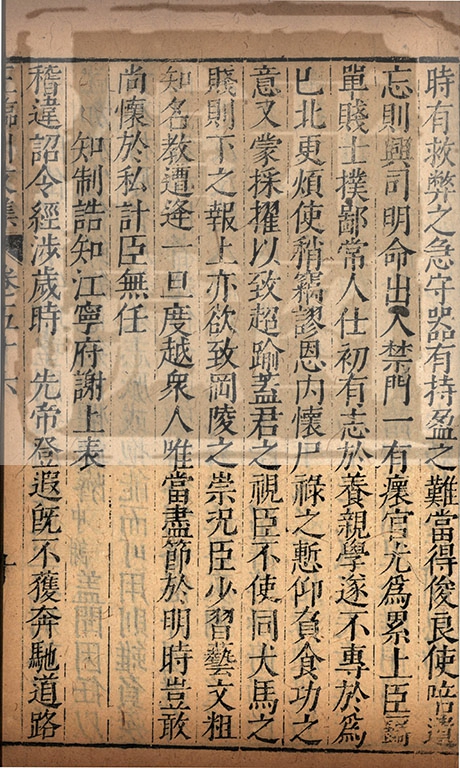 時有救弊之急守器有持盈之難當得俊良使唔遺
忘則興司明命出入禁門一有瘝官尤為累上臣
單賤士撲鄙常人仕初有志於養親學遂不專於爲
已北更煩使稍竊謬恩内懷尸祿之慙仰負食功之
意又蒙採擢以致超踰蓋君之視臣不使同犬馬之
賤則下之報上亦欲致岡陵之崇况臣少習藝文粗
知名教遭逢一旦度越衆人唯當盡節於明時豈敢
尚懷於私計臣無任
知制誥知江寧府謝上表
稽違詔令經涉歲時 先帝登遐既不獲奔馳道路
王臨川文集 卷五十六 十